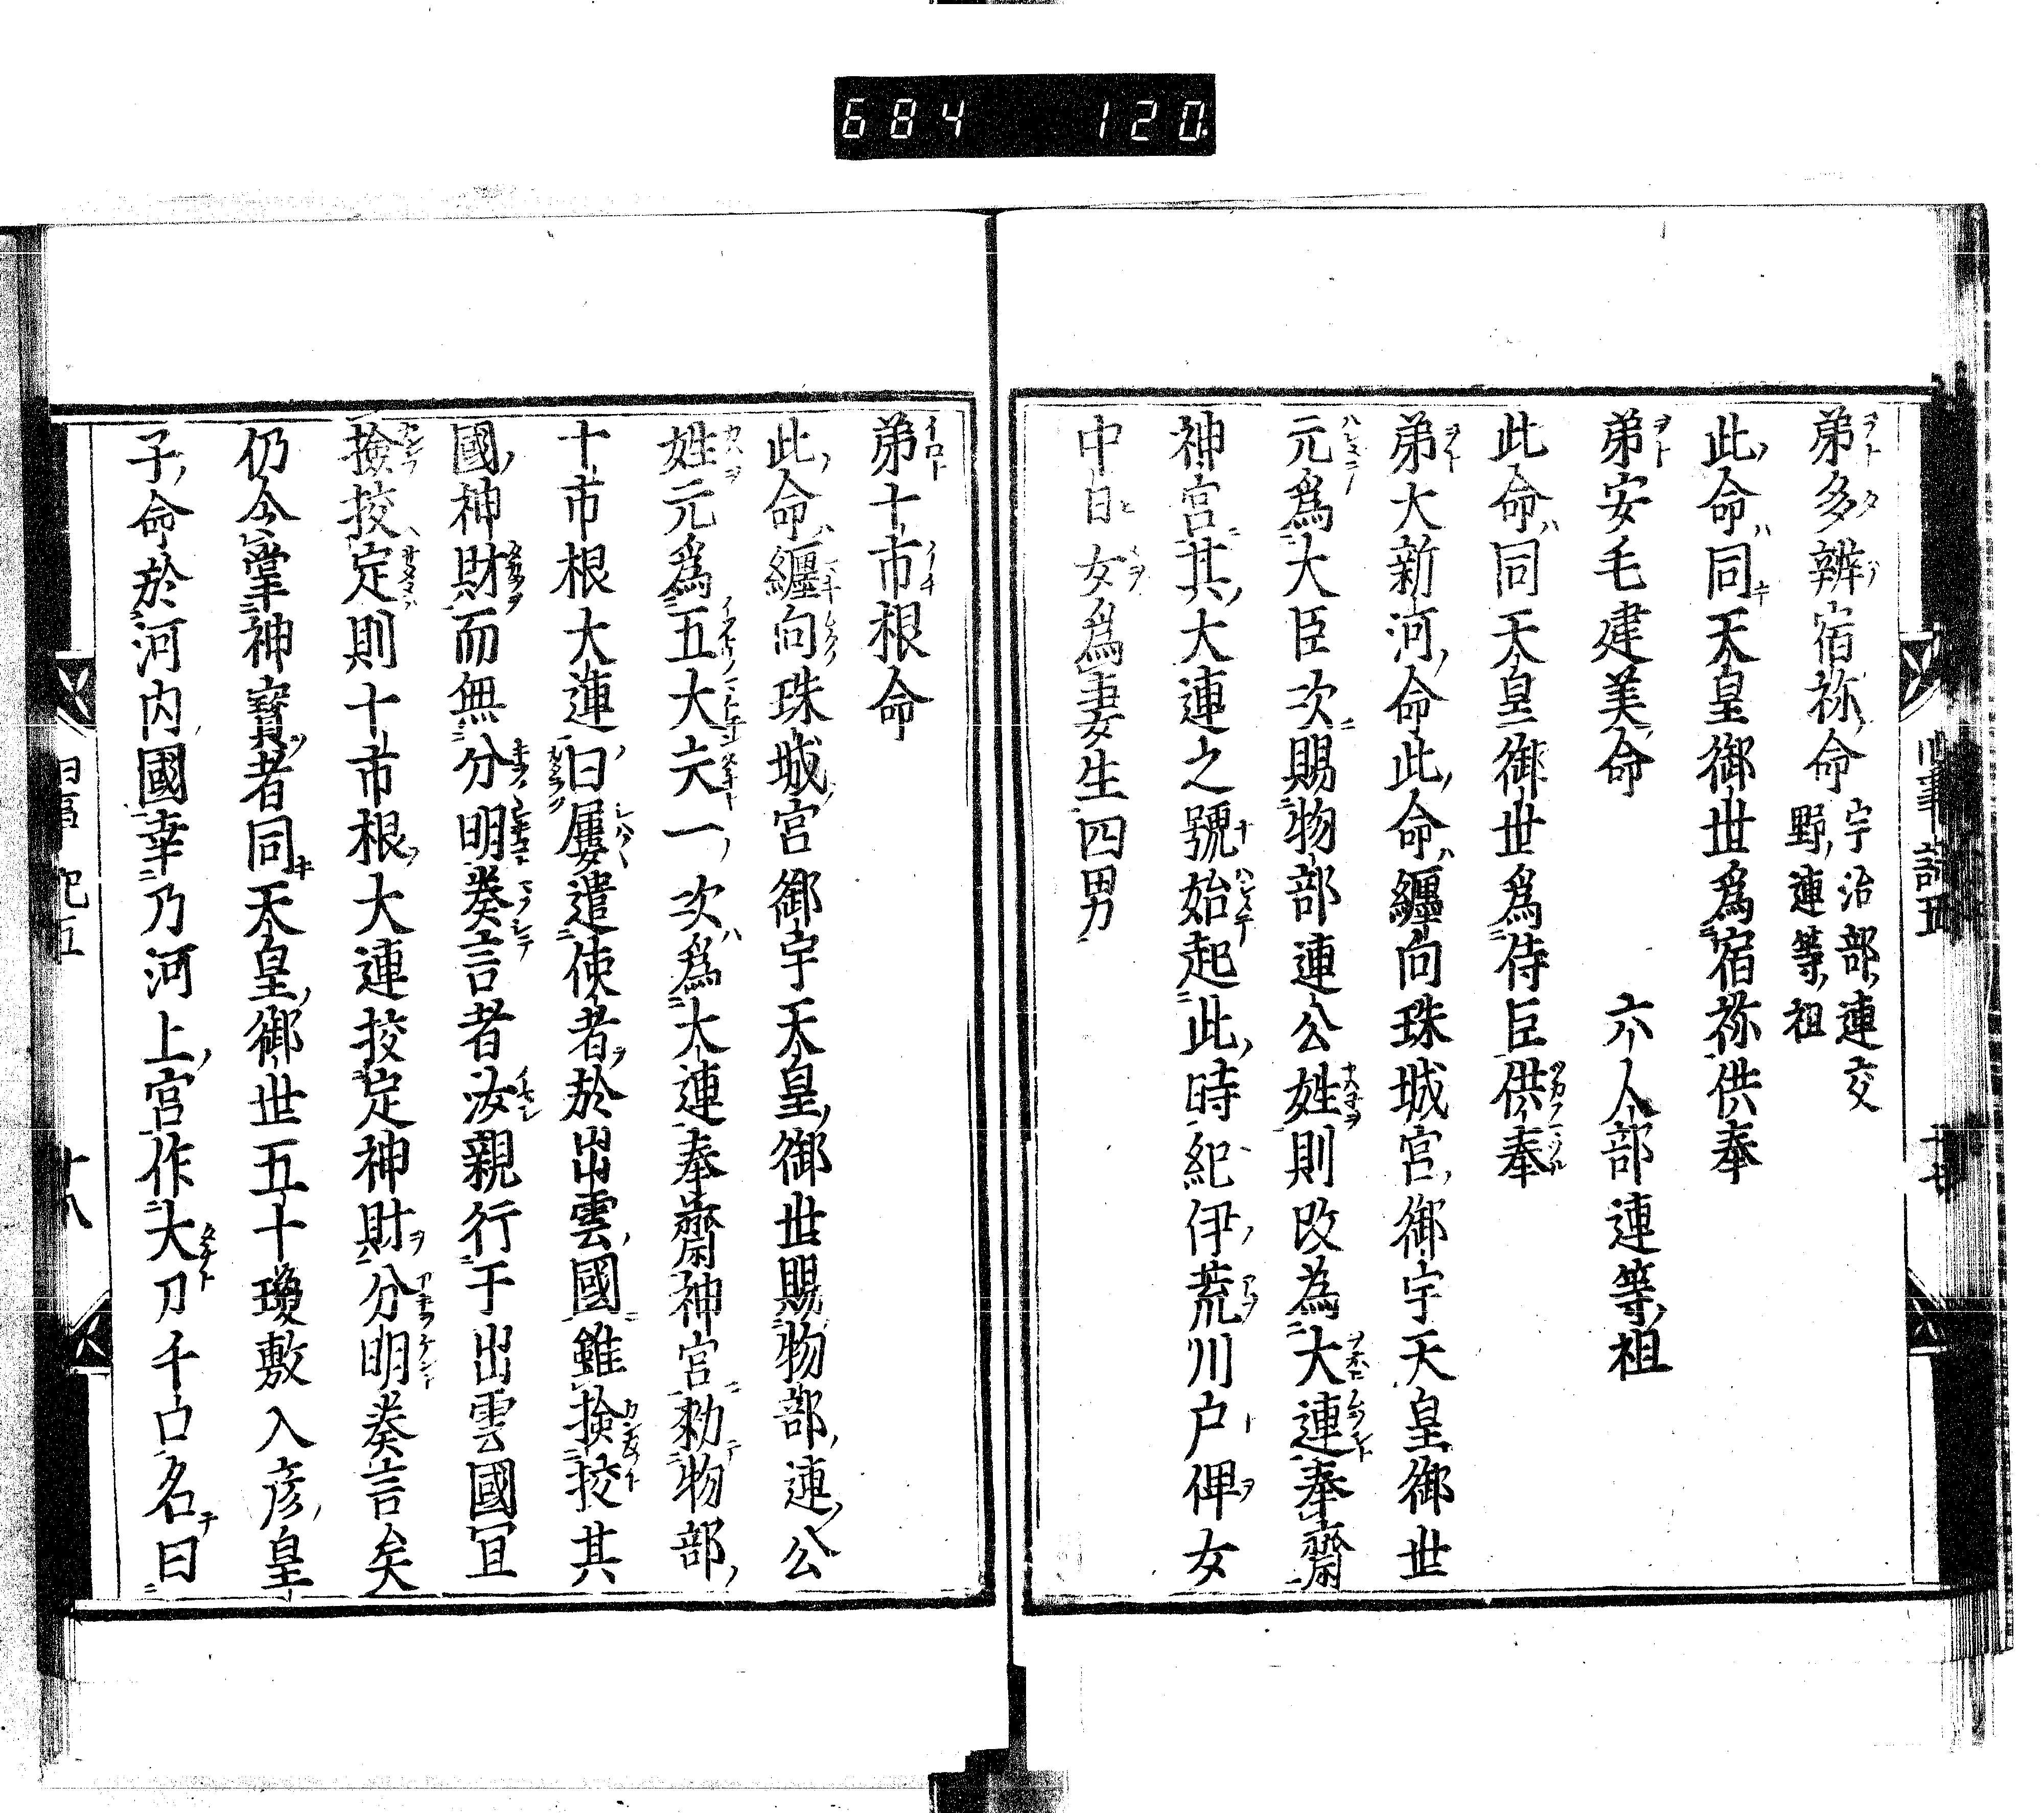 684 120
弟多辨宿祢命 宇治部連交
野連等祖
此命同天皇御世為宿祢供奉
弟安毛建美命 六人部連等祖
此命同天皇御世為侍臣供奉
弟大新河命此命纏向珠城宮御宇天皇御世
元為大臣次賜物部連公姓則改為大連奉齋
神宮其大連之號始起此時紀伊荒川戸俾女
中日女為妻生四男
弟十市根命
此命纏向珠城宮御宇天皇御世賜物部連公
姓元為五大夫一次為大連奉齋神宮勅物部
十市根大連曰屢遣使者於出雲國雖撿挍其
國神財而無分明奏言者汝親行于出雲國冝
撿挍定則十市根大連挍定神財分明奏言矣
仍令掌神寶者同天皇御世五十瓊敷入彦皇
子命於河内國幸乃河上宮作大刀千口名曰